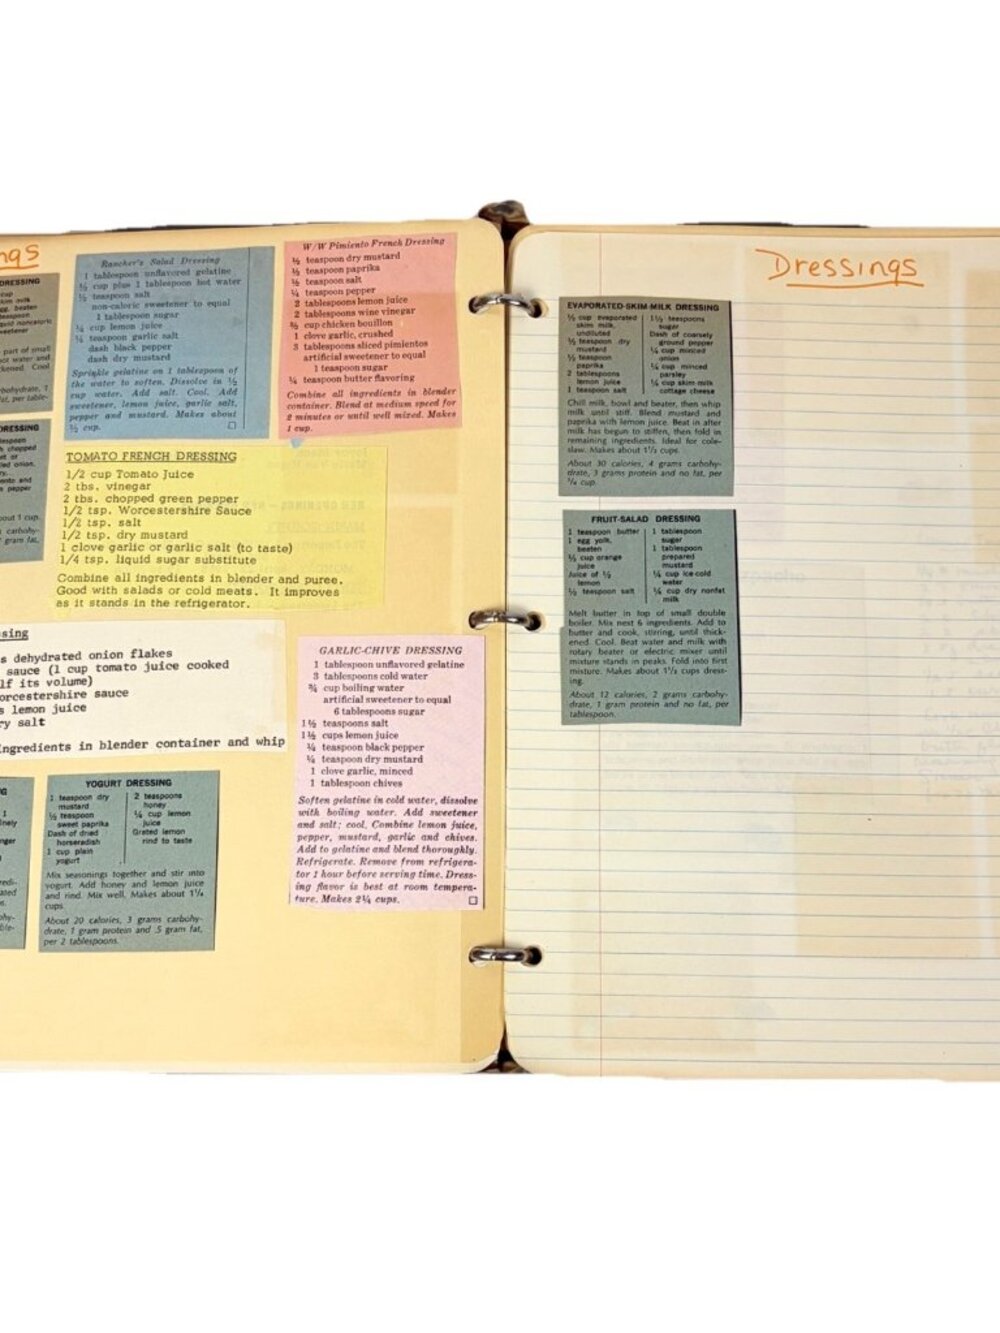 ngs
DRESSING
cup
kim milk
egg, beaten
teaspoon
part of small
hot water and
ckened. Cool
rbohydrate, 1
fat, per table-
DRESSING
h chopped
ed onion,
ents and
s pepper
bout 1 cup.
carbohy-
gram fat,
Rancher's Salad Dressing
1 tablespoon unflavored gelatine
½ cup plus 1 tablespoon hot water
½ teaspoon salt
non-caloric sweetener to equal
1 tablespoon sugar
¼ cup lemon juice
¼ teaspoon garlic salt
dash black pepper
dash dry mustard
Sprinkle gelatine on 1 tablespoon of
the water to soften. Dissolve in ½
cup water. Add salt. Cool. Add
sweetener, lemon juice, garlic salt,
pepper and mustard. Makes about
½ cup.
W/W Pimiento French Dressing
½ teaspoon dry mustard
½ teaspoon paprika
½ teaspoon salt
¼ teaspoon pepper
2 tablespoons lemon juice
2 tablespoons wine vinegar
⅔ cup chicken bouillon
1 clove garlic, crushed
3 tablespoons sliced pimientos
artificial sweetener to equal
1 teaspoon sugar
¼ teaspoon butter flavoring
Combine all ingredients in blender
container. Blend at medium speed for
2 minutes or until well mixed. Makes
1 cup.
TOMATO FRENCH DRESSING
1/2 cup Tomato Juice
2 tbs. vinegar
2 tbs. chopped green pepper
1/2 tsp. Worcestershire Sauce
1/2 tsp. salt
1/2 tsp. dry mustard
1 clove garlic or garlic salt (to taste)
1/4 tsp. liquid sugar substitute
Combine all ingredients in blender and puree.
Good with salads or cold meats. It improves
as it stands in the refrigerator.
ssing
s dehydrated onion flakes
sauce (1 cup tomato juice cooked
lf its volume)
orcestershire sauce
s lemon juice
ry salt
ingredients in blender container and whip
YOGURT DRESSING
1 teaspoon dry
mustard
½ teaspoon
sweet paprika
Dash of dried
horseradish
1 cup plain
yogurt
2 teaspoons
honey
¼ cup lemon
juice
Grated lemon
rind to taste
Mix seasonings together and stir into
yogurt. Add honey and lemon juice
and rind. Mix well. Makes about 1¼
cups.
About 20 calories, 3 grams carbohy-
drate, 1 gram protein and .5 gram fat,
per 2 tablespoons.
GARLIC-CHIVE DRESSING
1 tablespoon unflavored gelatine
3 tablespoons cold water
¾ cup boiling water
artificial sweetener to equal
6 tablespoons sugar
1½ teaspoons salt
1½ cups lemon juice
¼ teaspoon black pepper
¼ teaspoon dry mustard
1 clove garlic, minced
1 tablespoon chives
Soften gelatine in cold water, dissolve
with boiling water. Add sweetener
and salt; cool. Combine lemon juice,
pepper, mustard, garlic and chives.
Add to gelatine and blend thoroughly.
Refrigerate. Remove from refrigera-
tor 1 hour before serving time. Dress-
ing flavor is best at room tempera-
ture. Makes 2¼ cups.
Dressings
EVAPORATED-SKIM-MILK DRESSING
½ cup evaporated
skim milk,
undiluted
½ teaspoon dry
mustard
½ teaspoon
paprika
2 tablespoons
lemon juice
1 teaspoon salt
1½ teaspoons
sugar
Dash of coarsely
ground pepper
¼ cup minced
onion
¼ cup minced
parsley
¼ cup skim-milk
cottage cheese
Chill milk, bowl and beater, then whip
milk until stiff. Blend mustard and
paprika with lemon juice. Beat in after
milk has begun to stiffen, then fold in
remaining ingredients. Ideal for cole-
slaw. Makes about 1½ cups.
About 30 calories, 4 grams carbohy-
drate, 3 grams protein and no fat, per
¼ cup.
FRUIT-SALAD DRESSING
1 teaspoon butter
1 egg yolk,
beaten
½ cup orange
juice
Juice of ½
lemon
½ teaspoon salt
1 tablespoon
sugar
1 tablespoon
prepared
mustard
¼ cup ice-cold
water
¼ cup dry nonfat
milk
Melt butter in top of small double
boiler. Mix next 6 ingredients. Add to
butter and cook, stirring, until thick-
ened. Cool. Beat water and milk with
rotary beater or electric mixer until
mixture stands in peaks. Fold into first
mixture. Makes about 1½ cups dress-
ing.
About 12 calories, 2 grams carbohy-
drate, 1 gram protein and no fat, per
tablespoon.